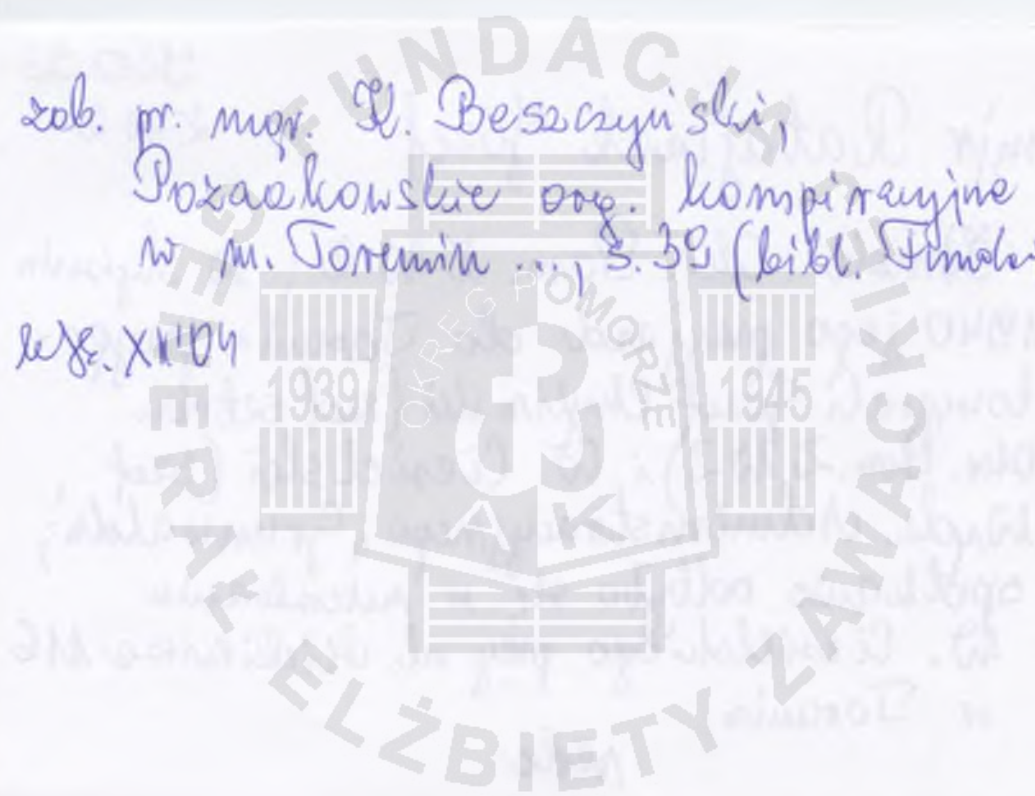 zob. pr. mgr. K. Beszczyński,
Pozaakowskie org. konspiracyjne
w m. Toruniu ..., s. 39 (bibl.
XI '04
FUNDACJA GENERAŁ ELŻBIETY ZAWACKIEJ
OKRĘG POMORZE
1939
1945
AK